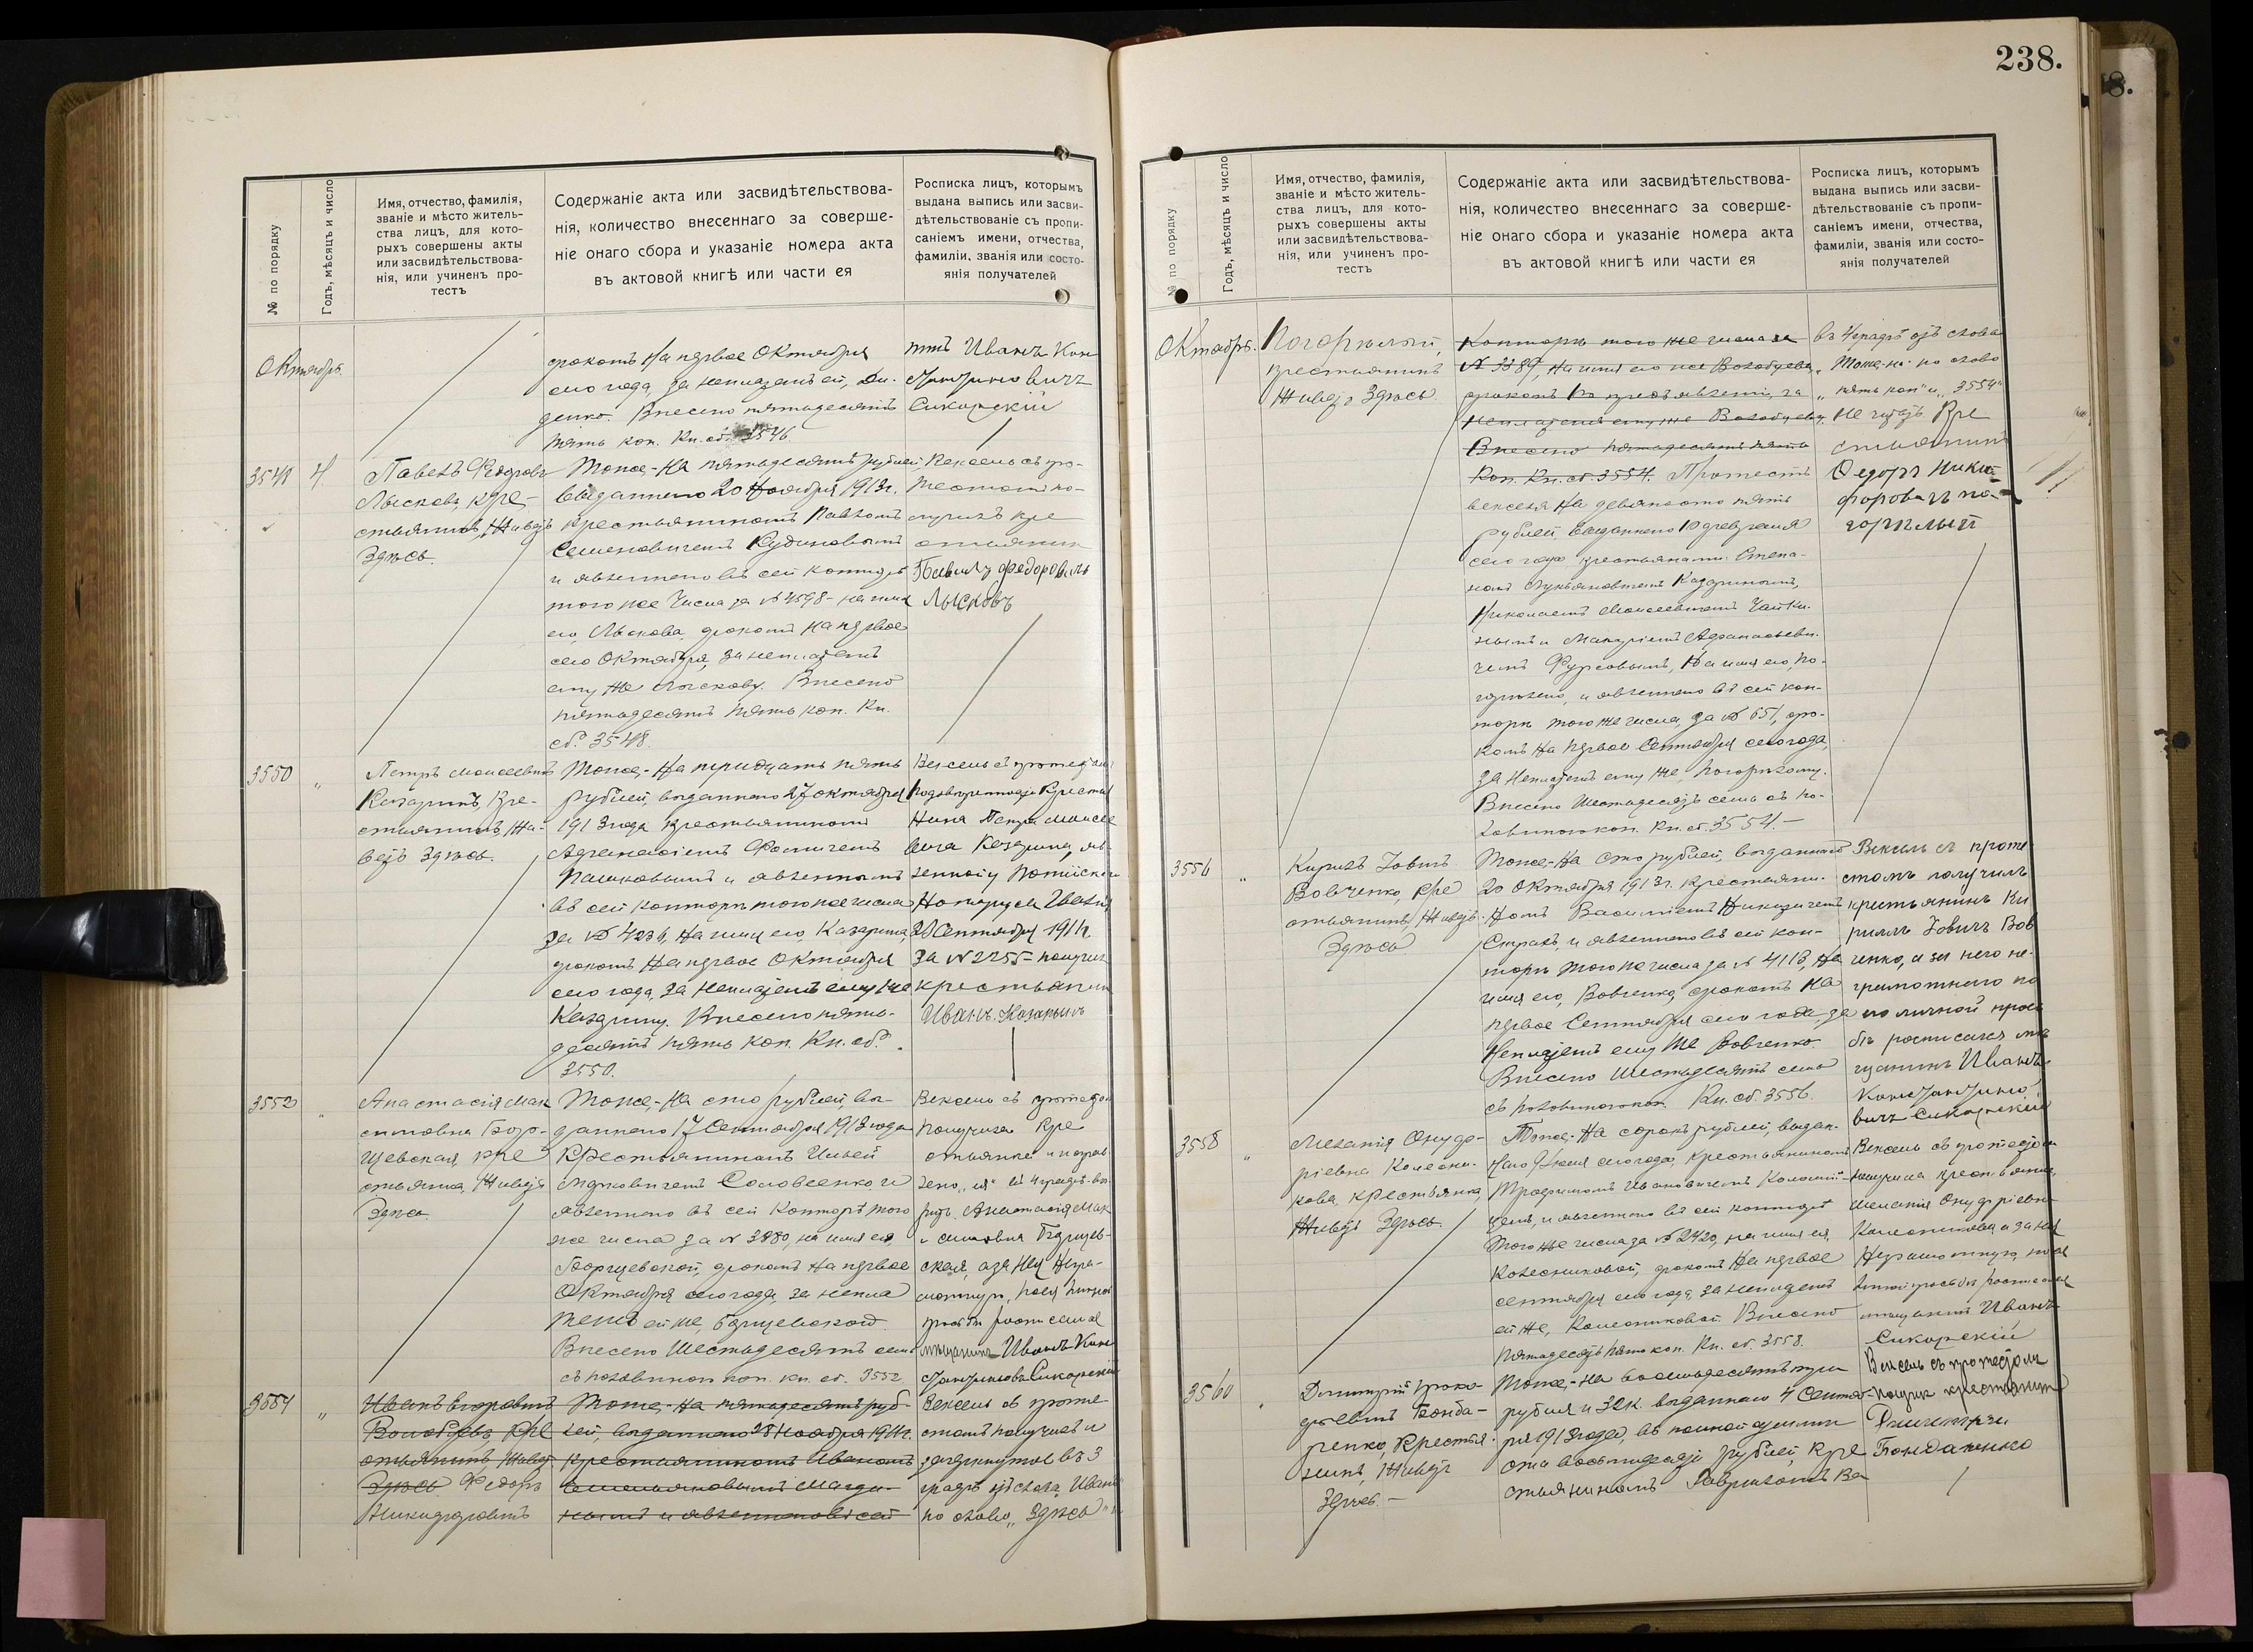 238.
№ по порядку
Годъ, мѣсяцъ и число
Имя, отчество, фамилія,
званіе и мѣсто житель-
ства лицъ, для кото-
рыхъ совершены акты
или засвидѣтельствова-
нія, или учиненъ про-
тестъ
Содержаніе акта или засвидѣтельствова-
нія, количество внесеннаго за соверше-
ніе онаго сбора и указаніе номера акта
въ актовой книгѣ или части ея
Росписка лицъ, которымъ
выдана выпись или засви-
дѣтельствованіе съ пропи-
саніемъ имени, отчества,
фамиліи, званія или состо-
янія получателей
Октябрь.
срокомъ на первое Октября
сего года, за неплатежъ ей,
денко. Внесено пятьдесятъ
пять коп. Кн. об. 3546
Иванъ Кон
стантиновичъ
Сикорскій
3548
4.
Павелъ Федоровъ
Лысковъ, кре-
стьянинъ, живетъ
Здѣсь.
Тоже, - на пятьдесятъ рублей
выданнаго 20 Ноября 1913 г.
крестьяниномъ Павломъ
Семеновичемъ Кудиновымъ
и явленнаго въ сей конторѣ
того же числа за № 4598 - на имя
его, Лыскова, срокомъ на первое
сего Октября, за неплатежъ
ему же Лыскову. Внесено
пятьдесятъ пять коп. Кн.
об. 3548.
Вексель съ про-
тестомъ по-
лучилъ кре
стьянин
Павилъ Федоровичъ
Лысковъ
3550
"
Петръ Моисеевичъ
Казаринъ, кре-
стьянинъ, жи-
ветъ Здѣсь.
Тоже, - на тридцать пять
рублей, выданнаго 27 Октября
1913 года крестьяниномъ
Афанасіемъ Фомичемъ
Пашковымъ и явленнымъ
въ сей конторѣ того же числа
за № 4236, на имя его, Казарина,
срокомъ на первое Октября
сего года, за неплатежъ ему же
Казарину. Внесено пять-
десятъ пять коп. Кн. об.
3550.
Вексель съ протестомъ
по довѣренности Крестья
нина Петра Моисее
вича Казарина, яв
ленной у
Нотаріуса
28 Сентября 1914 г.
за № 2255 - получилъ
крестьянин
Иванъ Казарынъ
3552
"
Анастасія Мак
симовна Бор-
щевская, кре
стьянка, живетъ
Здѣсь.
Тоже, - на сто рублей, вы-
даннаго 17 Сентября 1913 года
Крестьяниномъ Ильей
Марковичемъ Соловьенко и
явленнаго въ сей Конторѣ того
же числа за № 3880, на имя ея,
Борщевской, срокомъ на первое
Октября сего года, за непла
тежъ ей же, Борщевской
Внесено Шестьдесятъ семь
съ половиною коп. кн. об. 3552
Вексель съ протестом
получила Кре
стьянка и поправ
лено „ия" въ 4 графѣ
Анастасія Мак
симовна Борщев-
ская, а за нея негра-
мотную, по ея личной
просьбѣ росписался
мѣщанинъ Иванъ Кон
стантиновъ Сикорскій
3554
"
Иванъ Егоровичъ
Волобуевъ, кре
стьянинъ, живет
Здѣсь Федоръ
Никифоровичъ
Тоже, - на пятьдесятъ руб-
лей, выданнаго 28 Ноября 1911 г.
крестьяниномъ Иваномъ
Емельяновымъ
нымъ и явленнаго въ сей
Вексель съ проте
стомъ получилъ и
зачеркнутое въ 3
графѣ отъ слова „Иванъ
по слово „Здѣсь" и
№ по порядку
Годъ, мѣсяцъ и число
Имя, отчество, фамилія,
званіе и мѣсто житель-
ства лицъ, для кото-
рыхъ совершены акты
или засвидѣтельствова-
нія, или учиненъ про-
тестъ
Содержаніе акта или засвидѣтельствова-
нія, количество внесеннаго за соверше-
ніе онаго сбора и указаніе номера акта
въ актовой книгѣ или части ея
Росписка лицъ, которымъ
выдана выпись или засви-
дѣтельствованіе съ пропи-
саніемъ имени, отчества,
фамиліи, званія или состо-
янія получателей
Октябрь.
Погорѣлый,
крестьянинъ
Живетъ Здѣсь.
Конторѣ того же числа за
№ 3389, на имя его же Волобуева,
срокомъ по предъявленіи, за
неплатежъ ему же Волобуеву,
Внесено пятьдесятъ пять
Коп. Кн. об. 3554. Протестъ
векселя на девяносто пять
рублей, выданнаго 10 февраля
сего года крестьянами: Степа-
номъ Лукьяновичемъ Казаринымъ,
Николаемъ Моисеевичемъ Чайки-
нымъ и Макаріемъ Афанасьеви-
чемъ Фурсовымъ, на имя его, По-
горѣлаго, и явленнаго въ сей кон-
торѣ того же числа, за № 651, сро-
комъ на первое Сентября сего года,
за неплатежъ ему же, Погорѣлому.
Внесено Шестьдесятъ семь съ по-
ловиною коп. Кн. об. 3554. -
въ 4 графѣ отъ слова
„Тоже, на" по слово
„пять коп" и „3554"
не читать Кре
стьянинъ
Федоръ Ники
форовичъ По-
горѣлый
3556
"
Кирилъ Іовичъ
Вовченко, кре
стьянинъ, живетъ
Здѣсь
Тоже, - на сто рублей, выданнаго
20 Октября 1913 г. крестьяни-
номъ Василіемъ Никитичемъ
Страхъ, и явленнаго въ сей кон-
торѣ того же числа за № 4113, на
имя его, Вовченко, срокомъ на
первое Сентября сего года, за
неплатежъ ему же Вовченко.
Внесено Шестьдесятъ семь
съ половиною коп. Кн. об. 3556.
Вексиль съ проте
стомъ получилъ
крестьянинъ Ки
риллъ Іовичъ Вов
ченко, а за него не-
грамотнаго по
его личной прось
бѣ росписался мѣ
щанинъ Иванъ
Константино
вичъ Сикорскій
3558
"
Меланія Онуф-
ріевна Колесни-
кова, крестьянка,
Живетъ Здѣсь.
Тоже, - на сорокъ рублей, выдан-
наго 9 Іюля сего года, крестьяниномъ
Трофимомъ Ивановичемъ
и явленнаго въ сей конторѣ
того же числа за № 2420, на имя ея,
Колесниковой, срокомъ на первое
сентября сего года, за неплатежъ
ей же, Колесниковой. Внесено
Пятьдесятъ пять коп. Кн. об. 3558.
Вексель съ протестом
получила крестьянка
Мелания Онуфріевна
Колесникова, а за нея
неграмотную, по ея
личной просьбѣ росписался
мѣщанинъ Иванъ
Сикорскій
3560
"
Дмитрій Проко-
фьевичъ Бонда-
ренко, Крестья-
нинъ, Живетъ
Здѣсь. -
Тоже, - на восемьдесятъ три
рубля и 32 к. выданнаго 4 Сентяб-
ря 1913 года, въ полной суммѣ
ста восьмидесяти рублей, кре
стьяниномъ Гавриломъ Ва
Вексель съ протестом
получилъ крестьянинъ
Дмитрій
Бондаренко